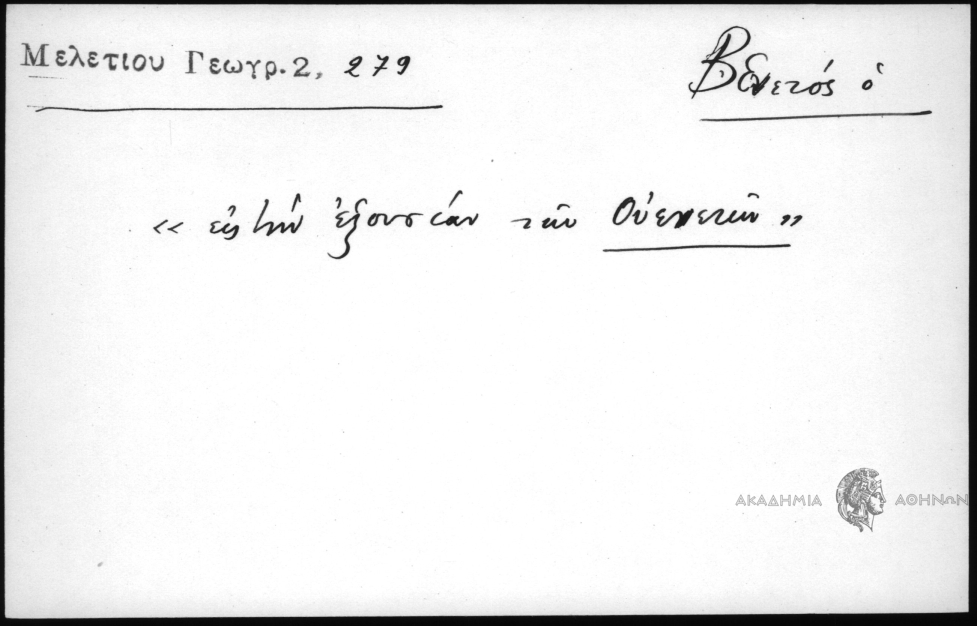 Μελετιου Γεωγρ. 2, 279
Βενετός ὁ
« εἰς τὴν ἐξουσίαν τῶν Οὐενετῶν »
ΑΚΑΔΗΜΙΑ ΑΘΗΝΩΝ